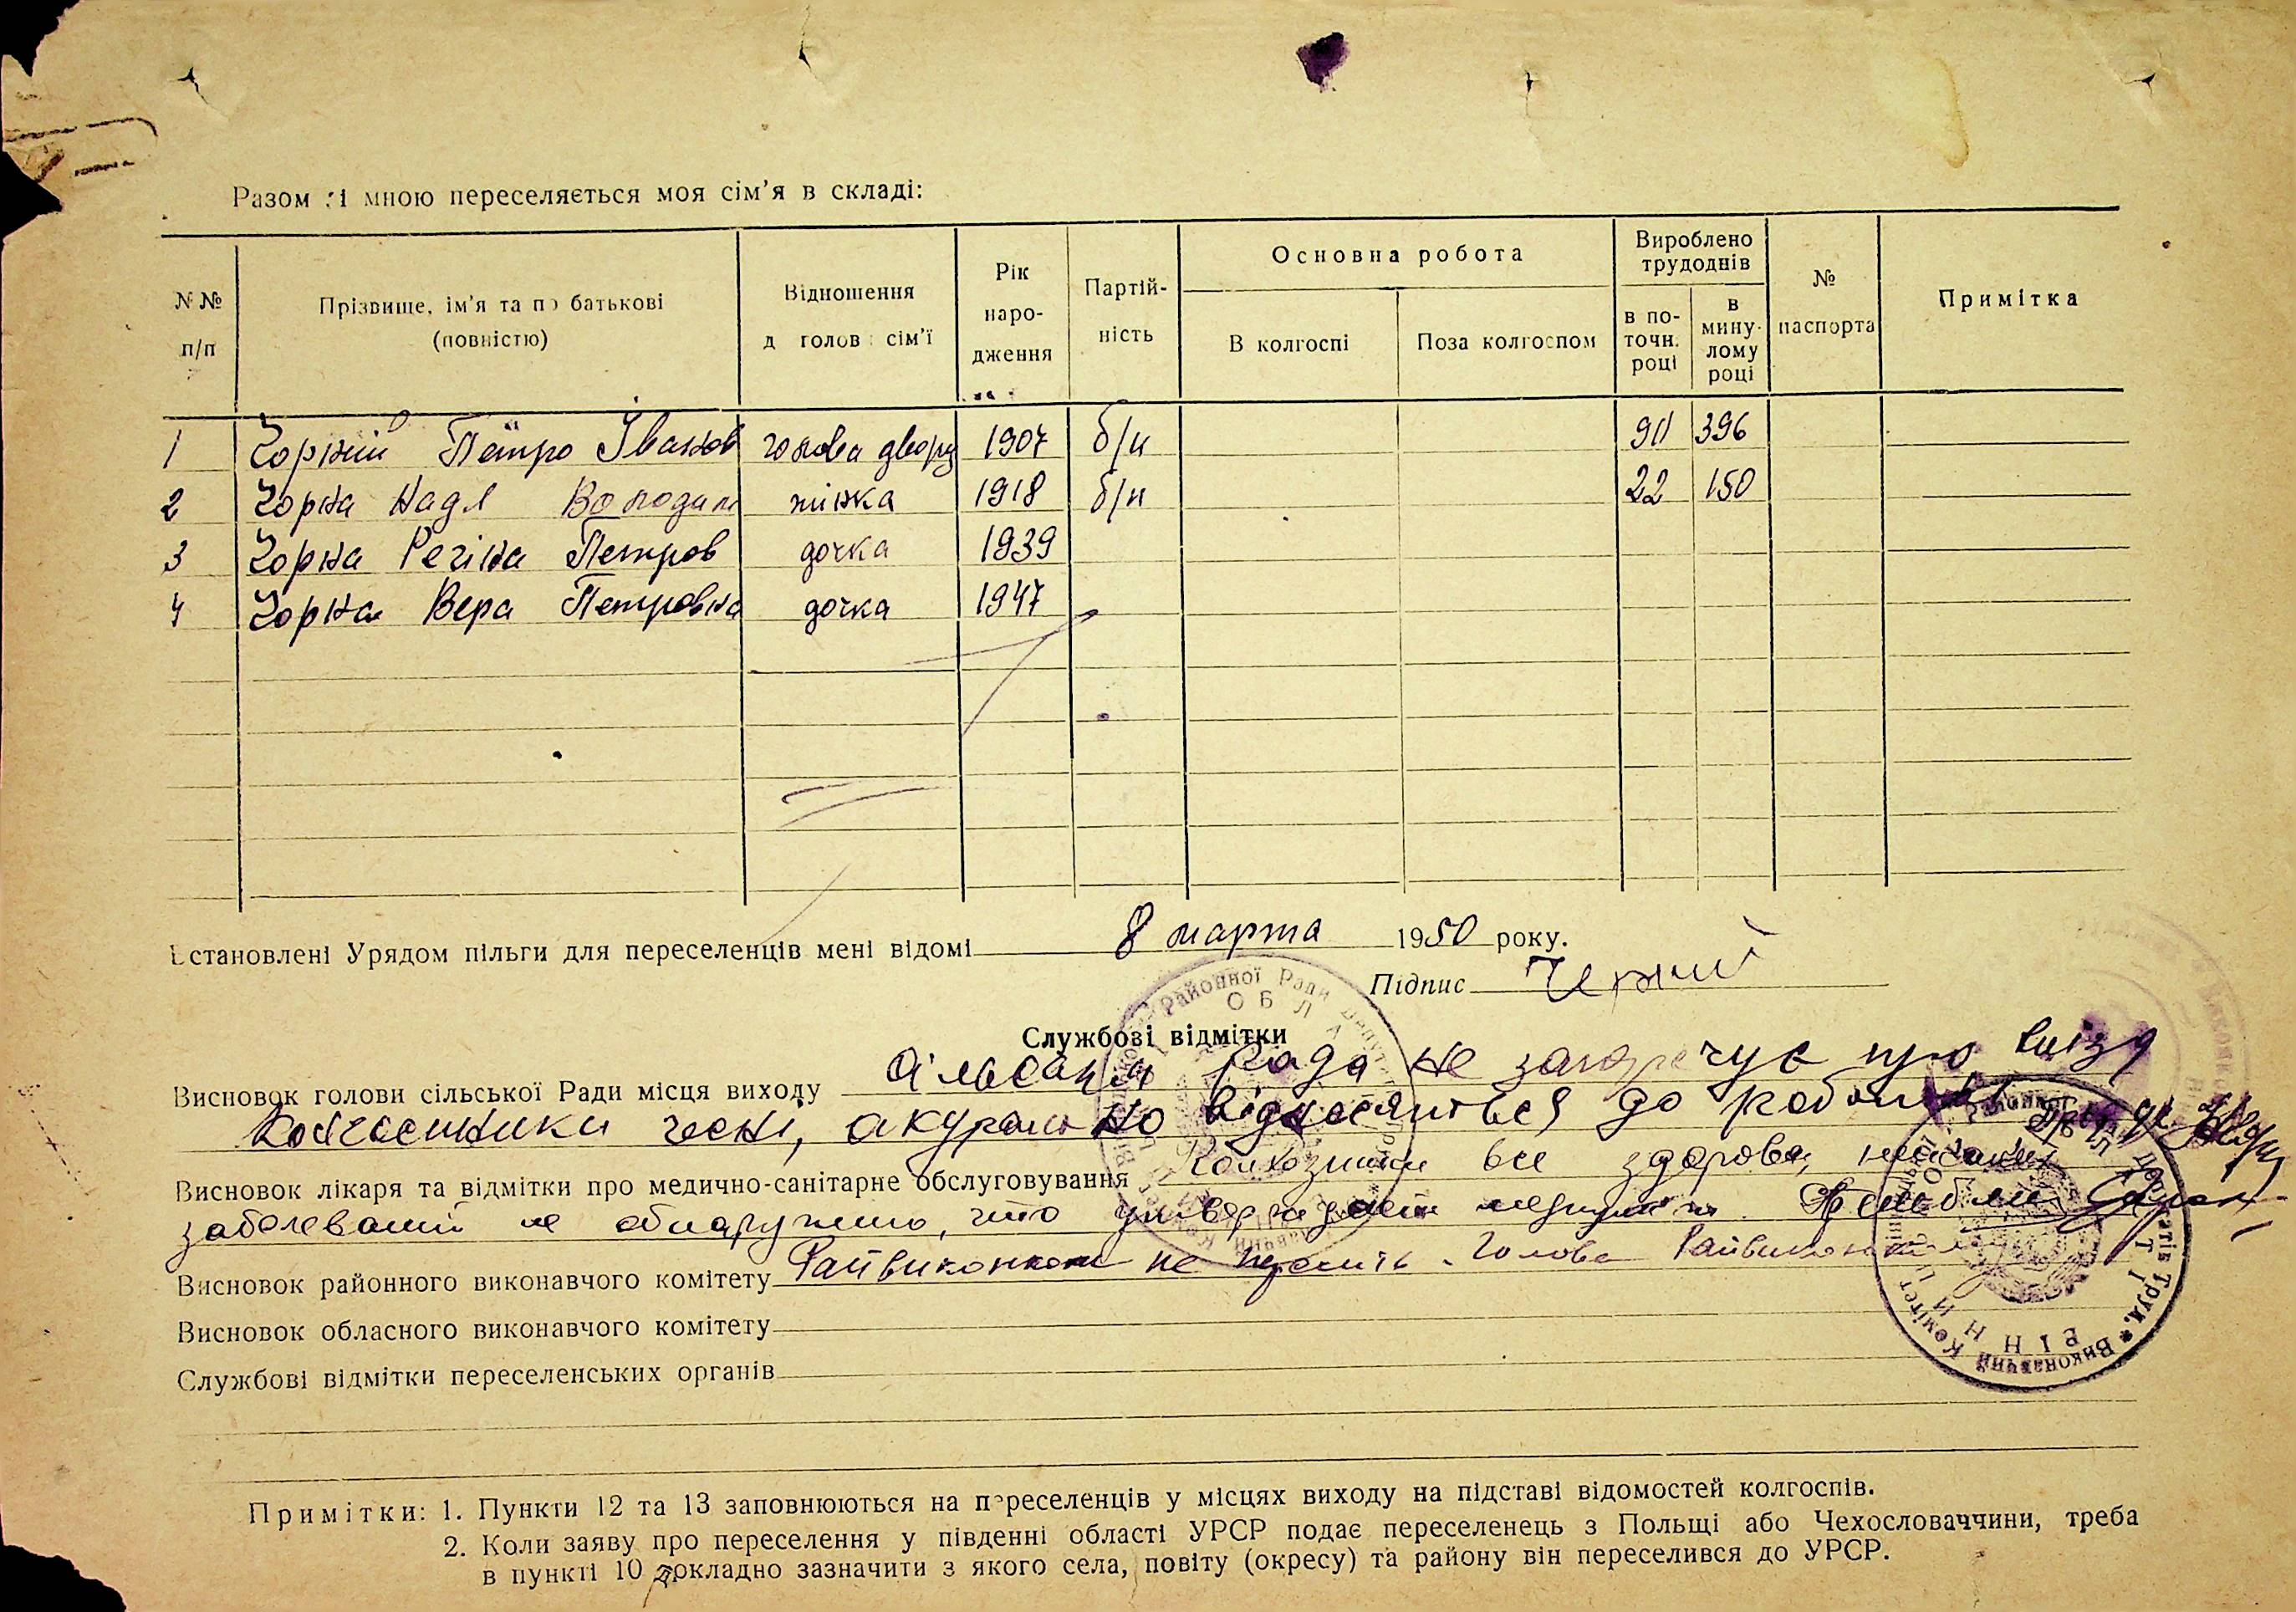 Разом зі мною переселяється моя сім'я в складі:
№№ п/п
Прізвище, ім'я та по батькові (повністю)
Відношення д голов сім'ї
Рік народження
Партійність
Основна робота
В колгоспі
Поза колгоспом
Вироблено трудоднів
в поточн. році
в минулому році
№ паспорта
Примітка
1 Чорний Петро Іванов голова двору 1907 б/п 90 396
2 Чорна Надя Володим жінка 1918 б/п 22 150
3 Чорна Регіна Петров дочка 1939
4 Чорна Вера Петровна дочка 1947
Встановлені Урядом пільги для переселенців мені відомі 8 марта 1950 року.
Підпис Черний
Службові відмітки
Висновок голови сільської Ради місця виходу Сільська Рада не заперечує про виїзд
колгоспники чесні, акуратно відносяться до роботи
Висновок лікаря та відмітки про медично-санітарне обслуговування Колхозники все здорови, никаких
заболеваний не обнаружено, что утверждает медпункт.
Висновок районного виконавчого комітету Райвиконком не Голова Райвиконкому
Висновок обласного виконавчого комітету
Службові відмітки переселенських органів
Примітки: 1. Пункти 12 та 13 заповнюються на переселенців у місцях виходу на підставі відомостей колгоспів.
2. Коли заяву про переселення у південні області УРСР подає переселенець з Польщі або Чехословаччини, треба
в пункті 10 докладно зазначити з якого села, повіту (окресу) та району він переселився до УРСР.